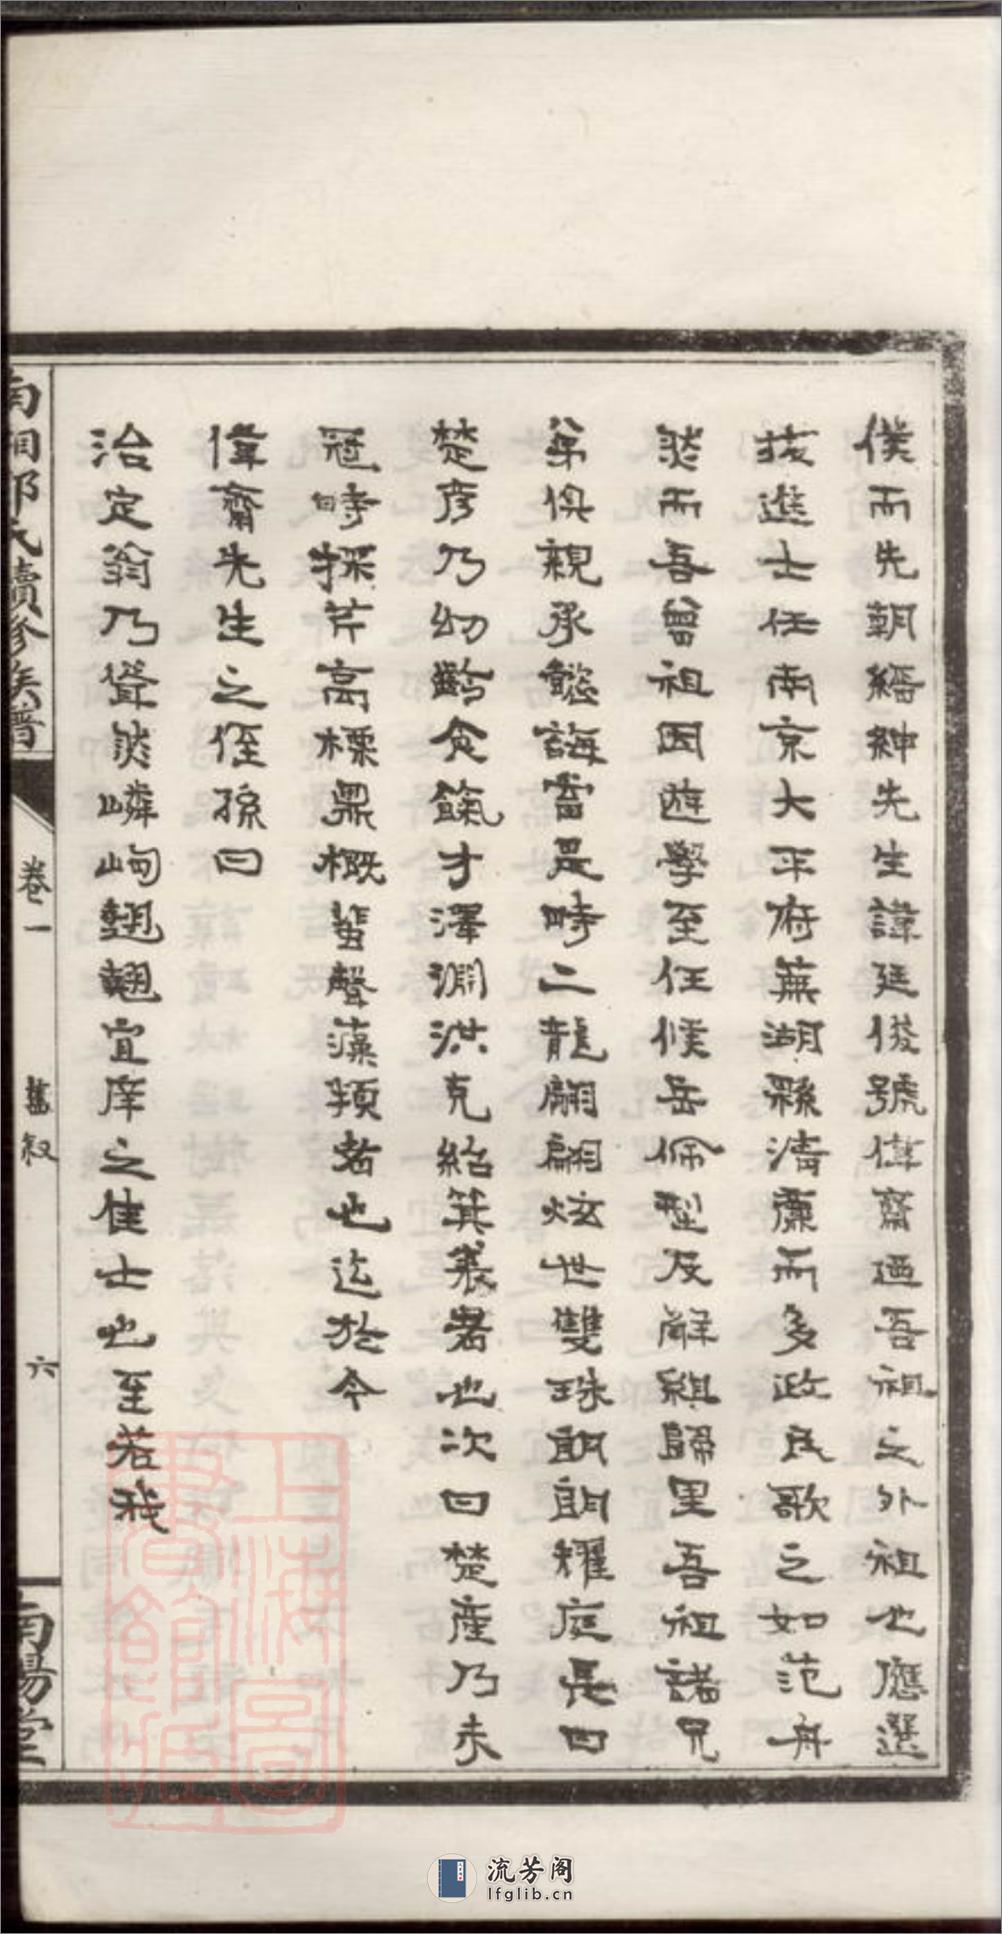 僕而先朝縉紳先生諱廷俊號偉齋迺吾祖之外祖也應選
拔進士任南京大平府蕪湖縣清廉而多政民歌之如范丹
然而吾曾祖因遊學至任候岳佩型及解組歸里吾祖諸兄
弟俱親承懿誨當是時二龍翩翩炫世雙珠朗朗耀庭長曰
楚彥乃幼齡食餼才澤淵洪克紹箕裘者也次曰楚產乃未
冠時採芹高標槩概蜚聲藻頖者也迄於今
偉齋先生之侄孫曰
治定翁乃聳然嶙峋翹翹宜庠之佳士也至若我
南湘鄧氏續修族譜
卷一
舊叙
六
南陽堂
上海圖書館藏
流芳阁
lfglib.cn